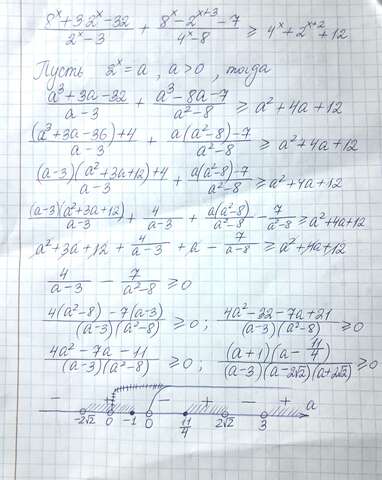 (8^x+3·2^x-32)/(2^x-3) + (8^x-2^(x+3)-7)/(4^x-8) ≥ 4^x+2^(x+2)+12
Пусть 2^x=a, a>0, тогда
(a^3+3a-32)/(a-3) + (a^3-8a-7)/(a^2-8) ≥ a^2+4a+12
((a^3+3a-36)+4)/(a-3) + (a(a^2-8)-7)/(a^2-8) ≥ a^2+4a+12
((a-3)(a^2+3a+12)+4)/(a-3) + (a(a^2-8)-7)/(a^2-8) ≥ a^2+4a+12
((a-3)(a^2+3a+12))/(a-3) + 4/(a-3) + (a(a^2-8))/(a^2-8) - 7/(a^2-8) ≥ a^2+4a+12
a^2+3a+12+4/(a-3)+a-7/(a^2-8) ≥ a^2+4a+12
4/(a-3) - 7/(a^2-8) ≥ 0
(4(a^2-8)-7(a-3))/((a-3)(a^2-8)) ≥ 0; (4a^2-32-7a+21)/((a-3)(a^2-8)) ≥ 0
(4a^2-7a-11)/((a-3)(a^2-8)) ≥ 0; ((a+1)(a-11/4))/((a-3)(a-2√2)(a+2√2)) ≥ 0
- + - + - + a
-2√2 0 -1 0 11/4 2√2 3